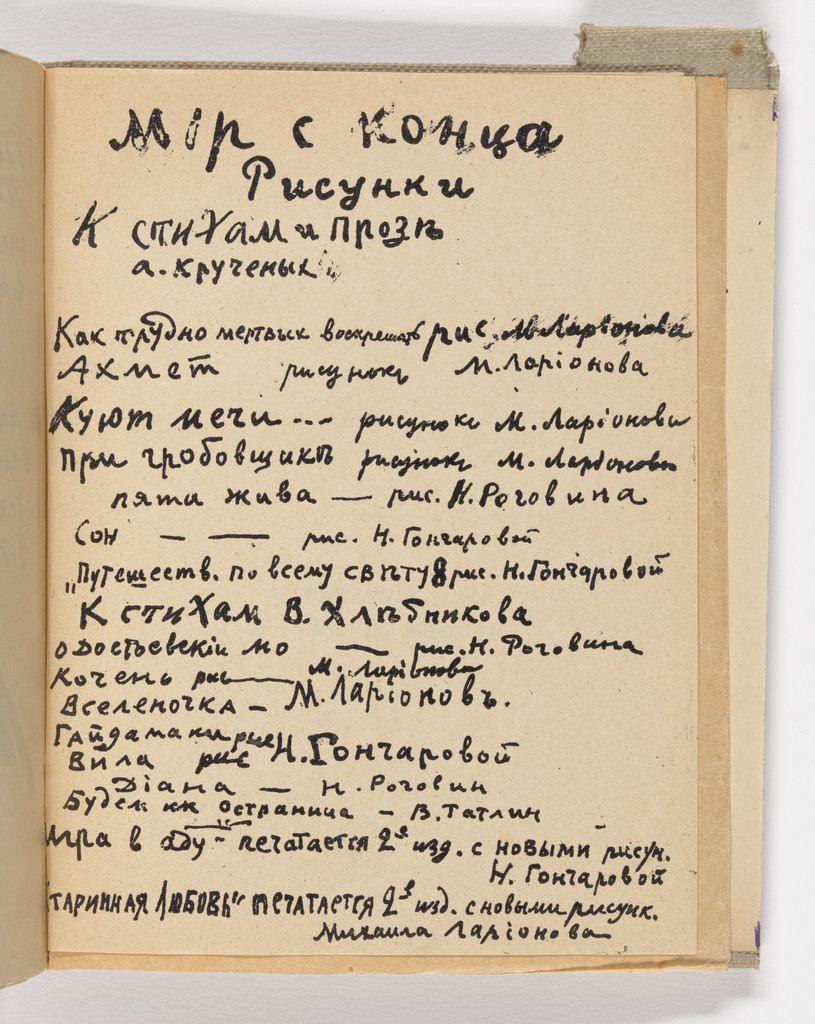 Мір с конца
Рисунки
К стихам и прозѣ
а. крученых
Как трудно мертвых воскрешать рис. М. Ларіонова
Ахмет рисунокъ М. Ларіонова
Куют мечи... рисунокъ М. Ларіонова
При гробовщикѣ рисунокъ М. Ларіонова
пяти жива — рис. Н. Роговина
Сон — — рис. Н. Гончаровой
„Путешеств. по всему свѣту рис. Н. Гончаровой
К стихам В. Хлѣбникова
о Достоевскій мо — рис. Н. Роговина
Кочень рис — М. Ларіонова
Вселеночка — М. Ларіоновъ.
Гайдамаки рис
Вила рис Н. Гончаровой
Діана — Н. Роговин
Остраница — В. Татлин
Игра в аду" печатается 2е изд. с новыми рисун.
Н. Гончаровой
тариннаЯ Любовь" печатается 2е изд. с новыми рисунк.
Михаила Ларіонова